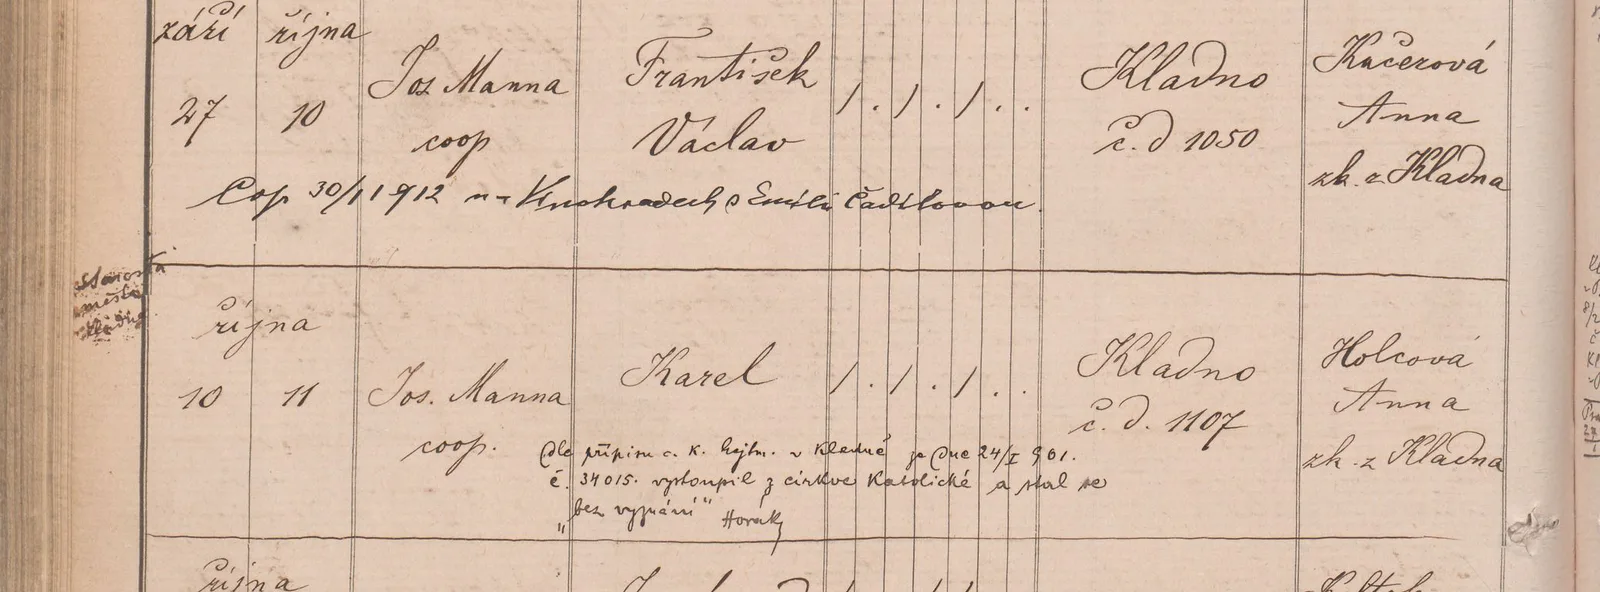 září října
27 10 Jos Manna František
coop Václav
Kladno
č. d 1050
Kučerová
Anna
zk. z Kladna
Cop 30/1 1912 na Vinohradech s Emilií
starosta
města
Kladna
října
10 11 Jos. Manna Karel
coop.
Kladno
č. d. 1107
Holcová
Anna
zk. z Kladna
dle přípisu c. k. hejtm. v Kladně ze dne 24/I 901.
č. 34015. vystoupil z církve Katolické a stal se
„bez vyznání" Horák
října